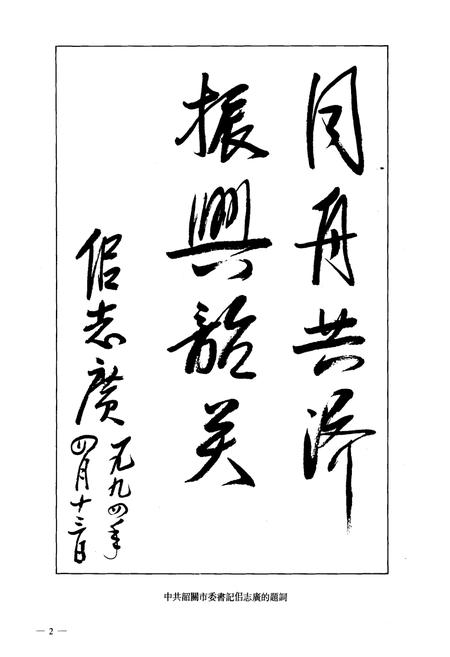 同舟共济
振興韶关
侣志廣
一九九四年
四月十三日
中共韶關市委書記侣志廣的題詞
— 2 —